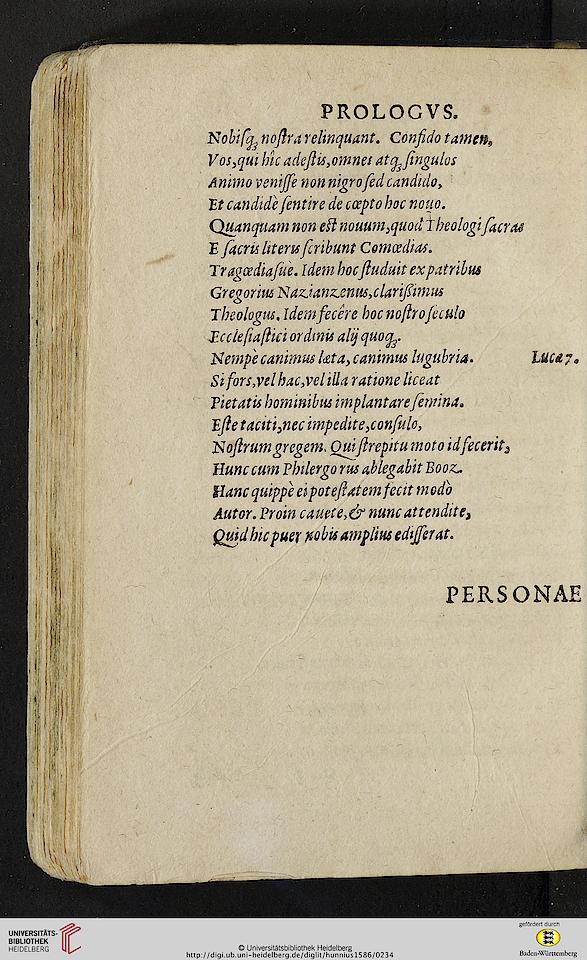 PROLOGVS.
Nobiſq́ꝫ noſtra relinquant. Confido tamen,
Vos, qui hîc adeſtis, omnes atq́ꝫ ſingulos
Animo veniſſe non nigro ſed candido,
Et candidè ſentire de cœpto hoc nouo.
Quanquam non eſt nouum, quod Theologi ſacras
E ſacris literis ſcribunt Comœdias.
Tragœdiaſuè. Idem hoc ſtuduit ex patribus
Gregorius Nazianzenus, clariſsimus
Theologus. Idem fecêre hoc noſtro ſeculo
Eccleſiaſtici ordinis alij quoq́ꝫ.
Nempè canimus læta, canimus lugubria. Lucæ 7.
Si fors, vel hac, vel illa ratione liceat
Pietatis hominibus implantare ſemina.
Eſte taciti, nec impedite, conſulo,
Noſtrum gregem. Qui ſtrepitu moto id fecerit,
Hunc cum Philergo rus ablegabit Booz.
Hanc quippè ei poteſtatem fecit modò
Autor. Proin cauete, & nunc attendite,
Quid hic puer nobis amplius ediſſerat.
PERSONAE
UNIVERSITÄTS-
BIBLIOTHEK
HEIDELBERG
© Universitätsbibliothek Heidelberg
http://digi.ub.uni-heidelberg.de/diglit/hunnius1586/0234
gefördert durch
Baden-Württemberg